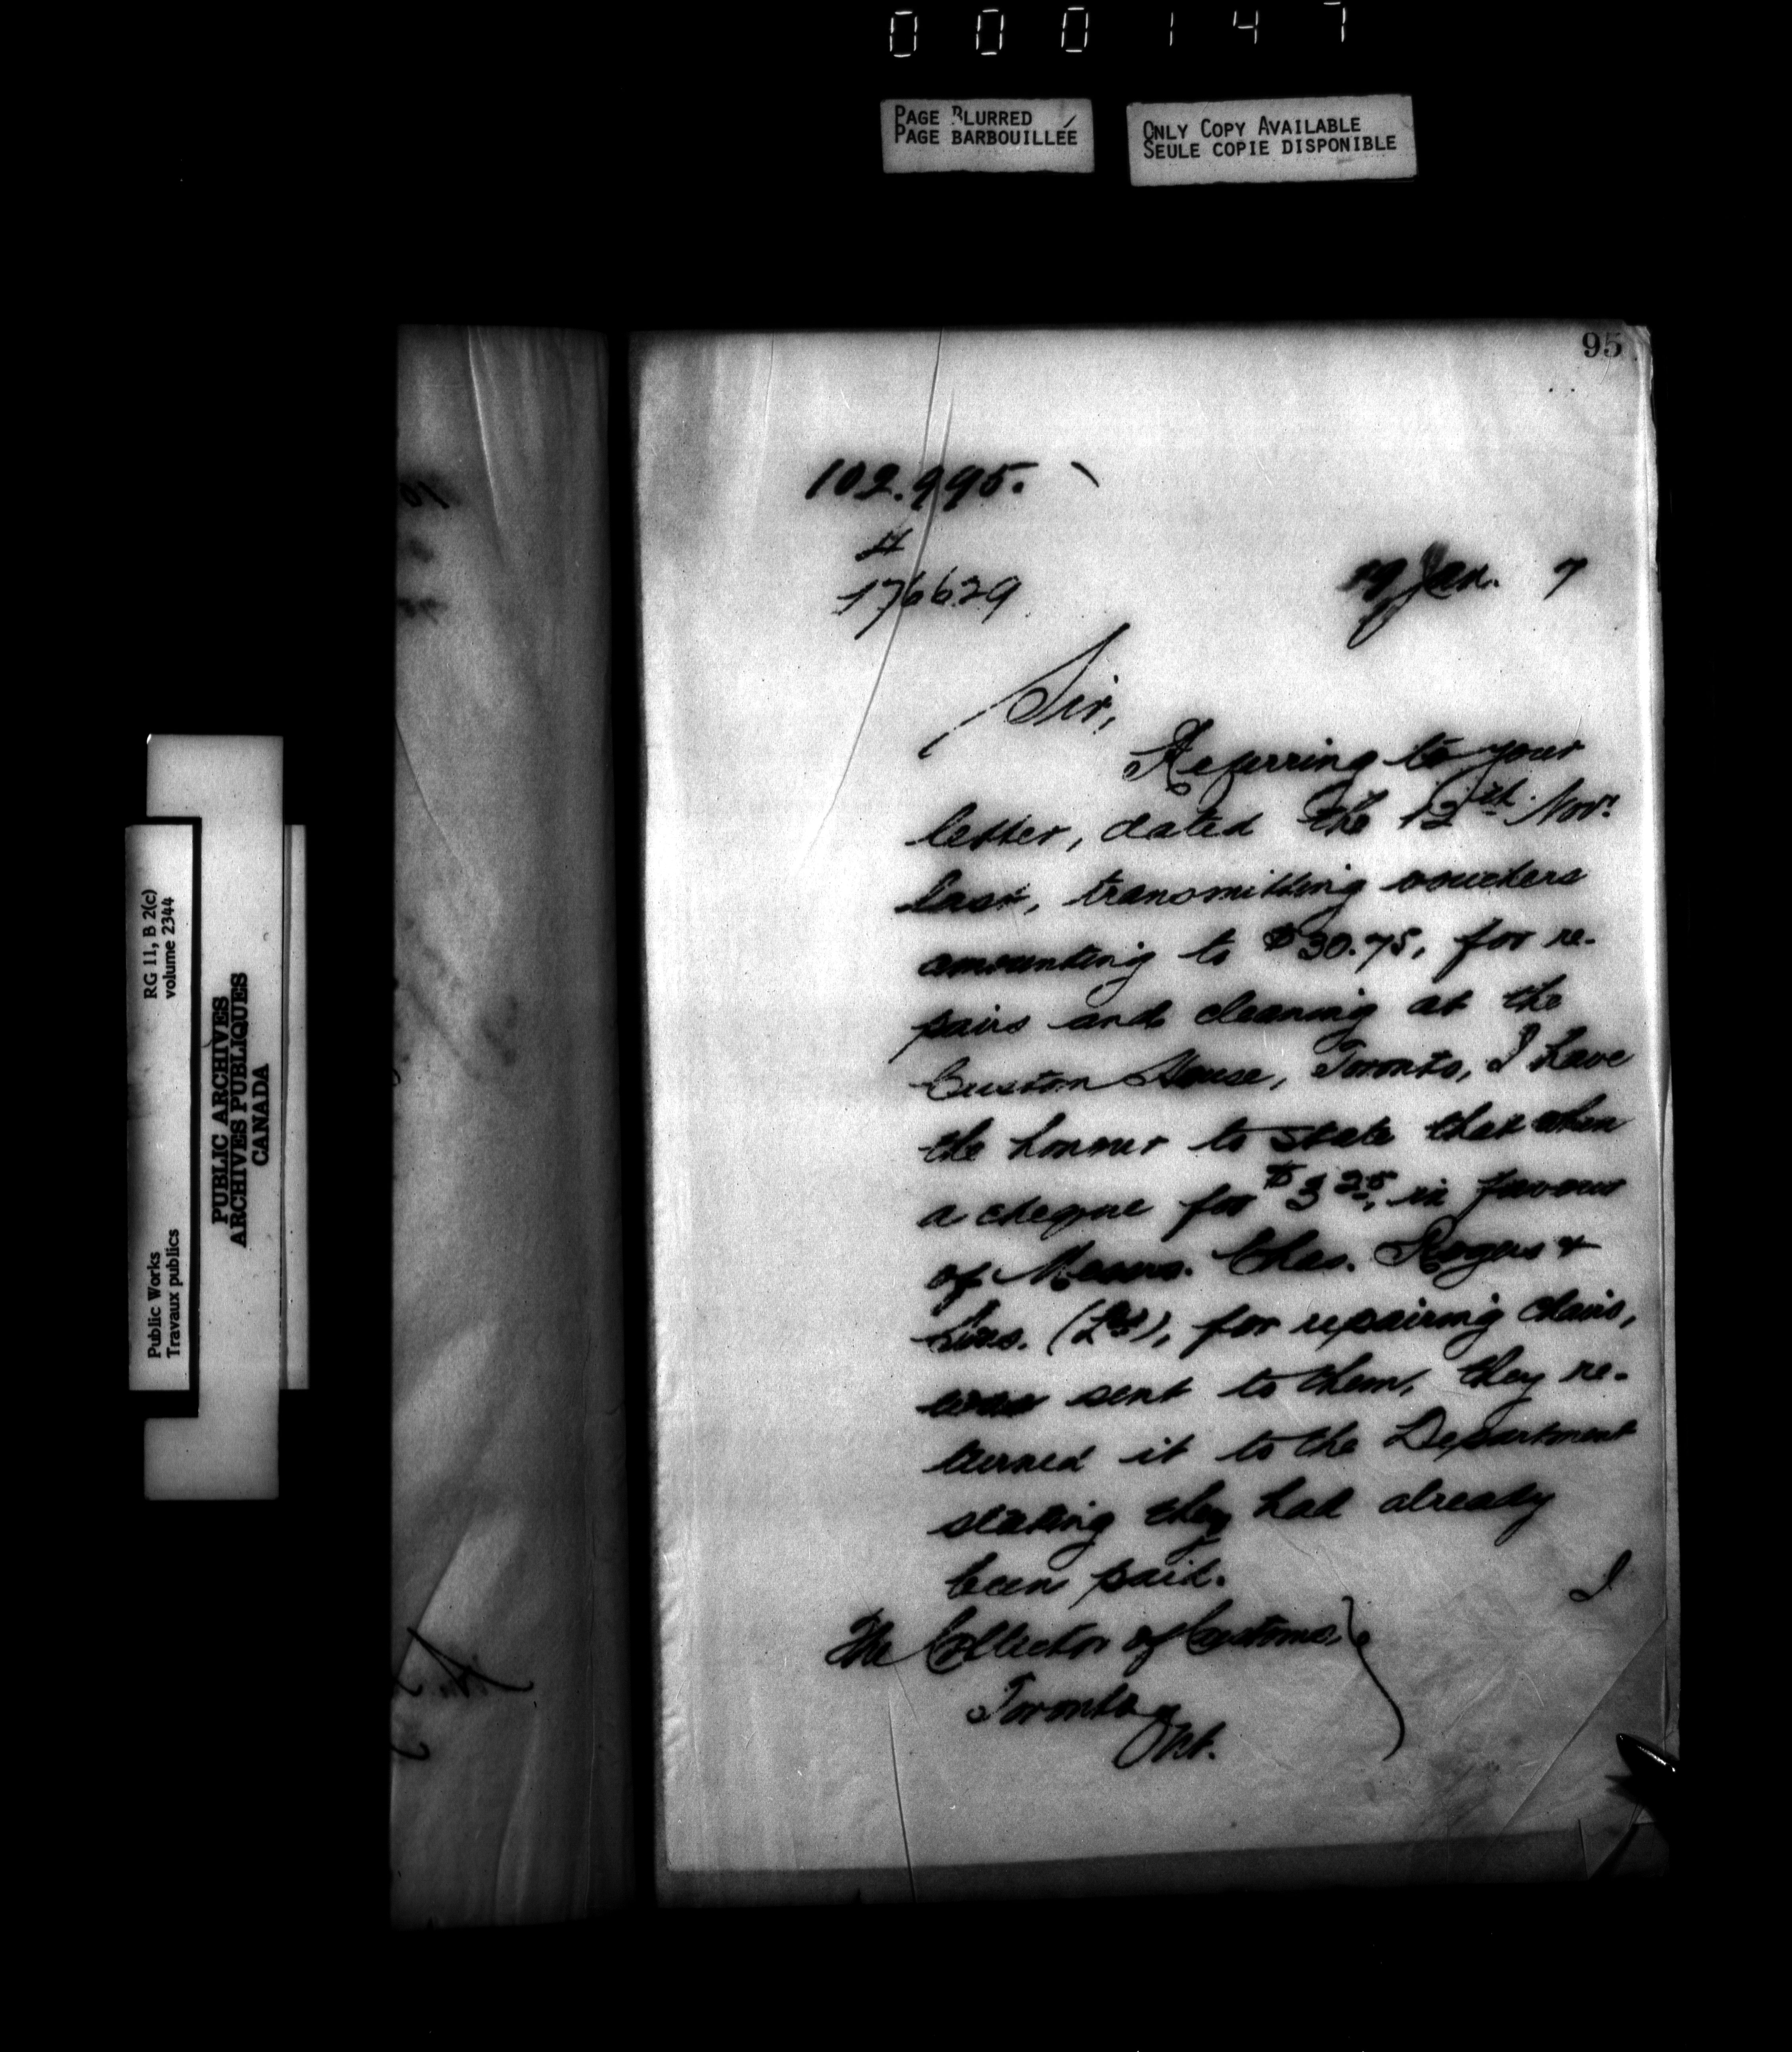 000147
PAGE BLURRED
PAGE BARBOUILLÉE
ONLY COPY AVAILABLE
SEULE COPIE DISPONIBLE
RG 11, B 2(c)
volume 2344
PUBLIC ARCHIVES
ARCHIVES PUBLIQUES
CANADA
Public Works
Travaux publics
95
102.995.
176629
19 Jan. 7
Sir,
Referring to your
letter, dated the 12th Novr.
last, transmitting vouchers
amounting to $30.75, for re-
pairs and cleaning at the
Custom House, Toronto, I have
the honour to state that when
a cheque for $3 25, in favour
of Messrs. Chas. Rogers &
Sons. (Ld), for repairing chairs,
was sent to them, they re-
turned it to the Department
stating they had already
been paid.
I
The Collector of Customs,
Toronto
Ont.